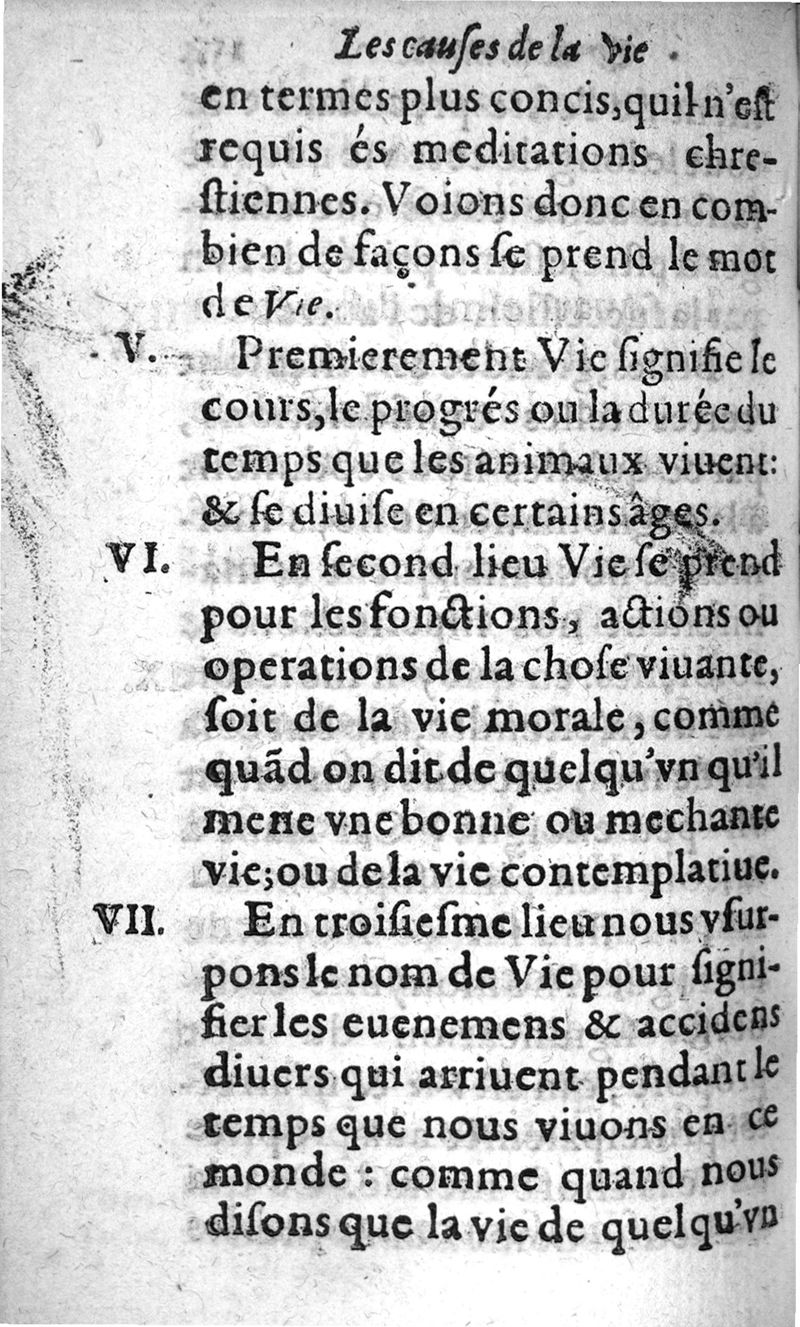 Les cauſes de la Vie .
en termes plus concis, quil n'eſt
requis és meditations chre-
ſtiennes. Voions donc en com-
bien de façons ſe prend le mot
de Vie.
V. Premierement Vie ſignifie le
cours, le progrés ou la durée du
temps que les animaux viuent:
& ſe diuiſe en certains âges.
VI. En ſecond lieu Vie ſe prend
pour les fonctions, actions ou
operations de la choſe viuante,
ſoit de la vie morale, comme
quãd on dit de quelqu'vn qu'il
mene vne bonne ou mechante
vie; ou de la vie contemplatiue.
VII. En troiſieſme lieu nous vſur-
pons le nom de Vie pour ſigni-
fier les euenemens & accidens
diuers qui arriuent pendant le
temps que nous viuons en ce
monde : comme quand nous
diſons que la vie de quelqu'vn